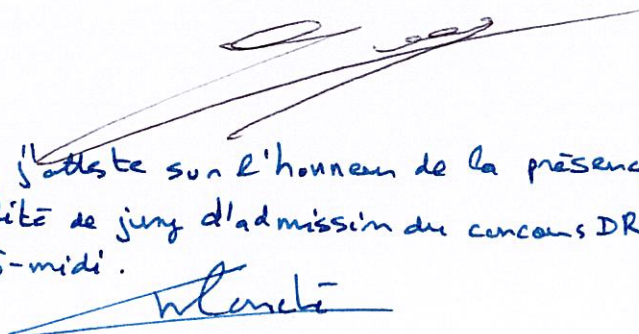 j'atteste sur l'honneur de la présenc
ité de jury d'admission du concours DR
-midi.